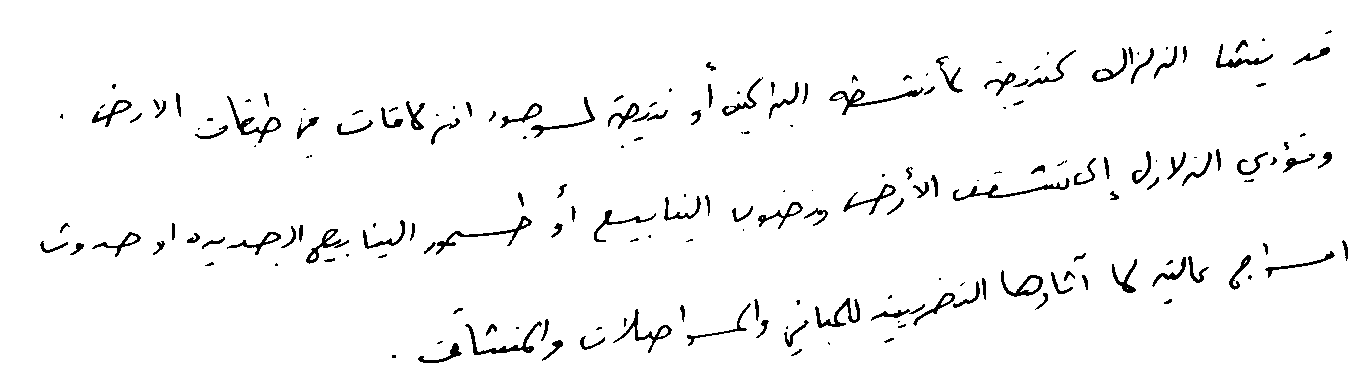 قد ينشا الزلزال كنتيجة لأنشطة البراكين أو نتيجة لوجود انزلاقات في طبقات الارض .
وتؤدي الزلازل إلى تشقق الأرض ونضوب الينابيع أو ظهور الينابيع الجديده او حدوث
امواج عالية لها آثارها التخريبية للمباني والمواصلات والمنشآت .